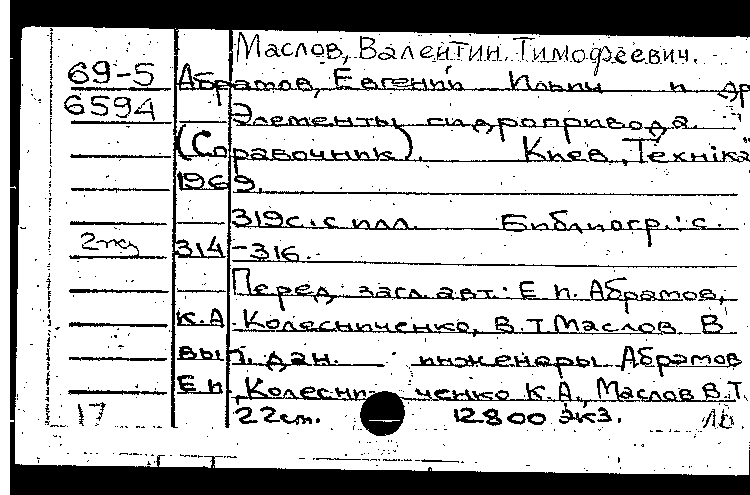 Маслов, Валентин Тимофеевич.
69-5 Абрамов, Евгений Ильич и др
6594 Элементы гидропривода.
(Справочник). Киев, "Технiка"
1969.
319с. с илл. Библиогр.: с.
2 экз 314-316.
Перед загл. авт.: Е.И. Абрамов,
К.А. Колесниченко, В.Т Маслов В
вып. дан. инженеры Абрамов
Е И, Колесни- ченко К.А., Маслов В.Т.
17 22см. 12800 экз.